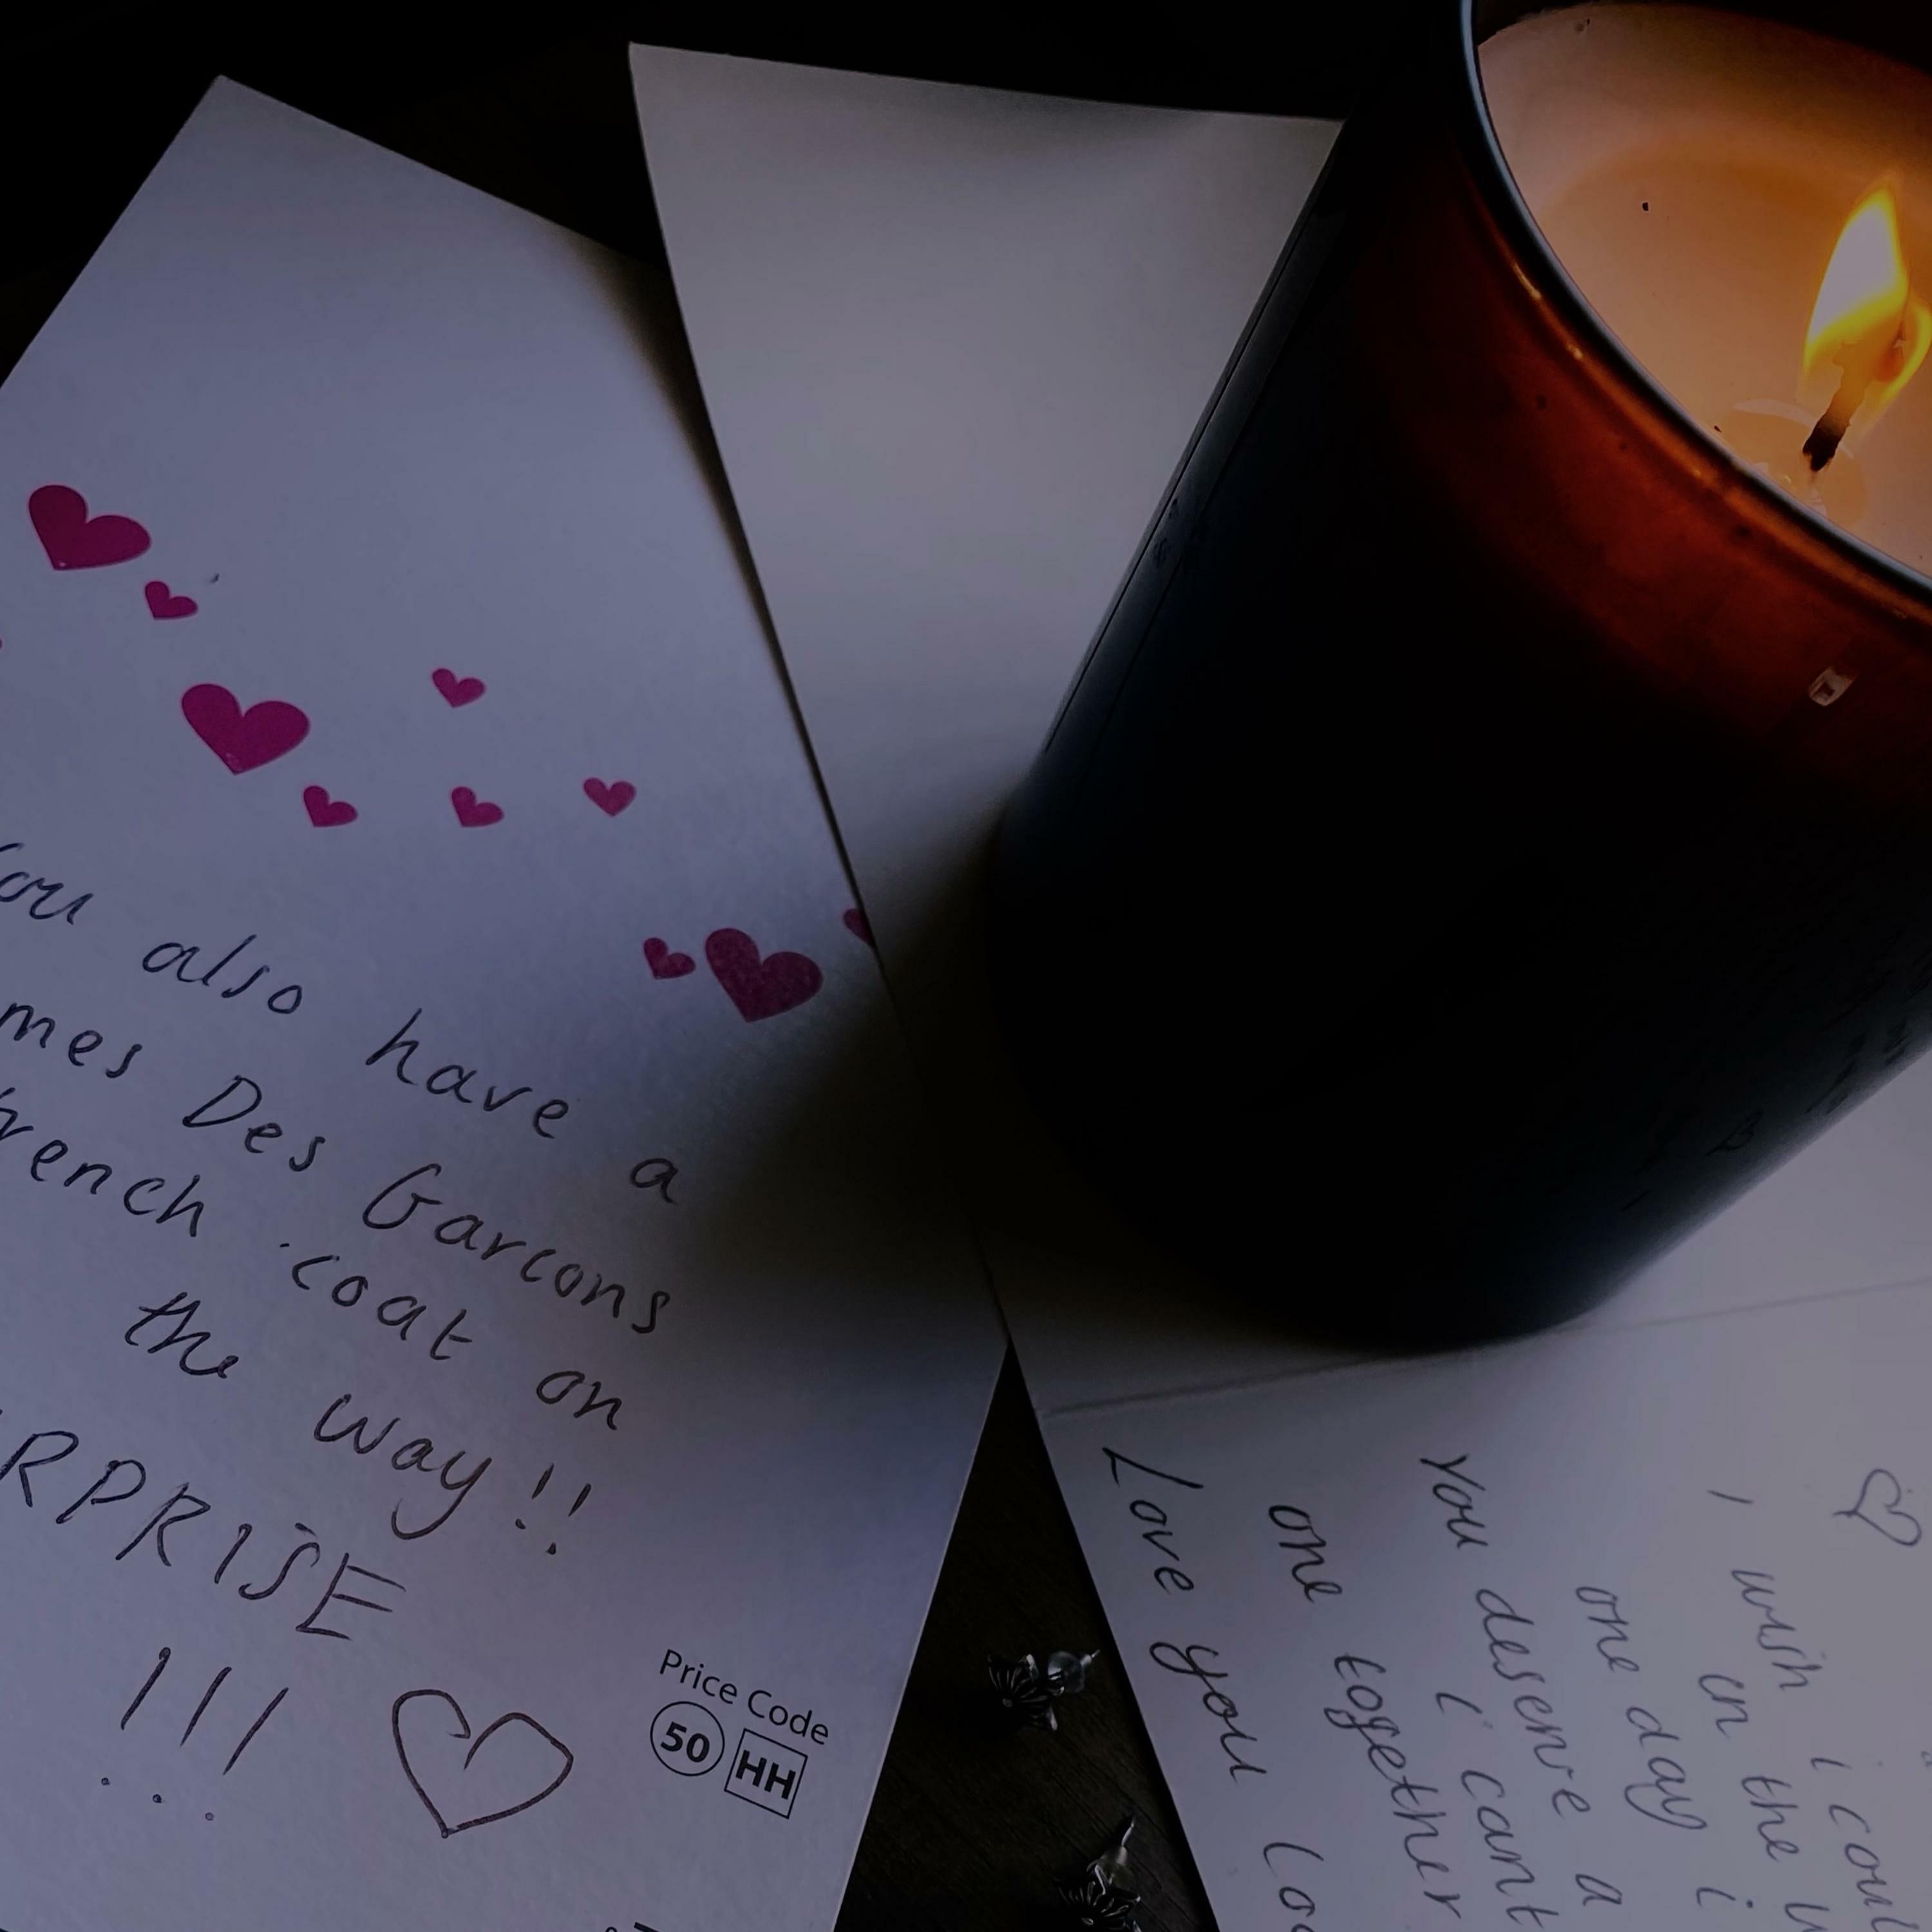 ou also have a
mes Des Garcons
rench coat on
the way!!
RPRISE
!!!
Price Code
50 HH
♡
I wish i coul
in the w
one day i
You deserve a
i cant
one together
Love you loo